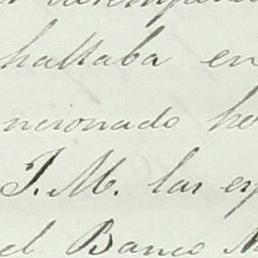 hallaba en
ncionado he
J. M. las es
el Banco N